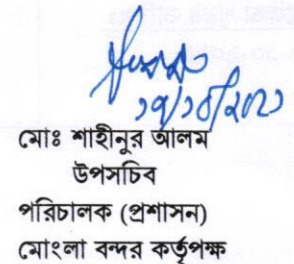 ১৭/১০/২০২১
মোঃ শাহীনুর আলম
উপসচিব
পরিচালক (প্রশাসন)
মোংলা বন্দর কর্তৃপক্ষ